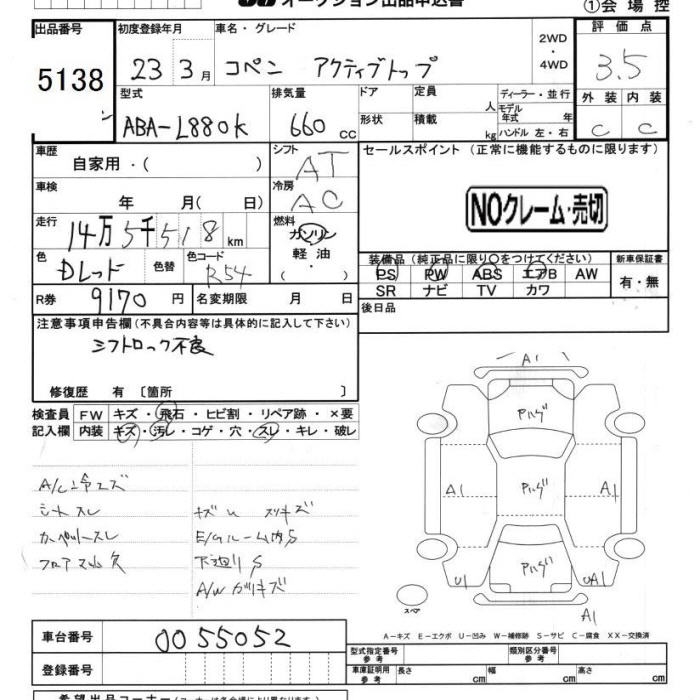 オークション出品申込書
①会場控
出品番号 5138
初度登録年月 23 3月
車名・グレード コペン アクティブトップ
2WD・4WD
評価点 3.5
外装 C 内装 C
型式 ABA-L880K
排気量 660 cc
ドア 形状
定員 人
積載 kg
ディーラー・並行
モデル年式 年式
ハンドル 左・右
車歴 自家用・( )
シフト AT
セールスポイント (正常に機能するものに限ります)
NOクレーム・売切
車検 年 月( 日)
冷房 AC
走行 14万5千518km
燃料 ガソリン 軽油 ( ・ )
色 Dレッド 色替 色コード R54
装備品 (純正品に限り○をつけてください)
PS PW ABS エアB AW
SR ナビ TV カワ
新車保証書 有・無
R券 9170円 名変期限 月 日
後日品
注意事項申告欄(不具合内容等は具体的に記入して下さい)
シフトロック不良
修復歴 有 〔箇所 〕
検査員記入欄
FW キズ・飛石・ヒビ割・リペア跡・×要
内装 キズ・汚レ・コゲ・穴・スレ・キレ・破レ
A/C冷エズ
シートスレ
カーペットスレ
フロアマット欠
キズU スリキズ
E/Gルーム内S
下廻りS
A/Wガリキズ
A1
Pハゲ
A1 Pハゲ A1
Pハゲ
U1 UA1
スペア
A1
A-キズ E-エクボ U-凹み W-補修跡 S-サビ C-腐食 XX-交換済
車台番号 0055052
型式指定番号 参考
類別区分番号 参考
登録番号
車庫証明用 参考 長さ cm 幅 cm 高さ cm
希望出品コーナー